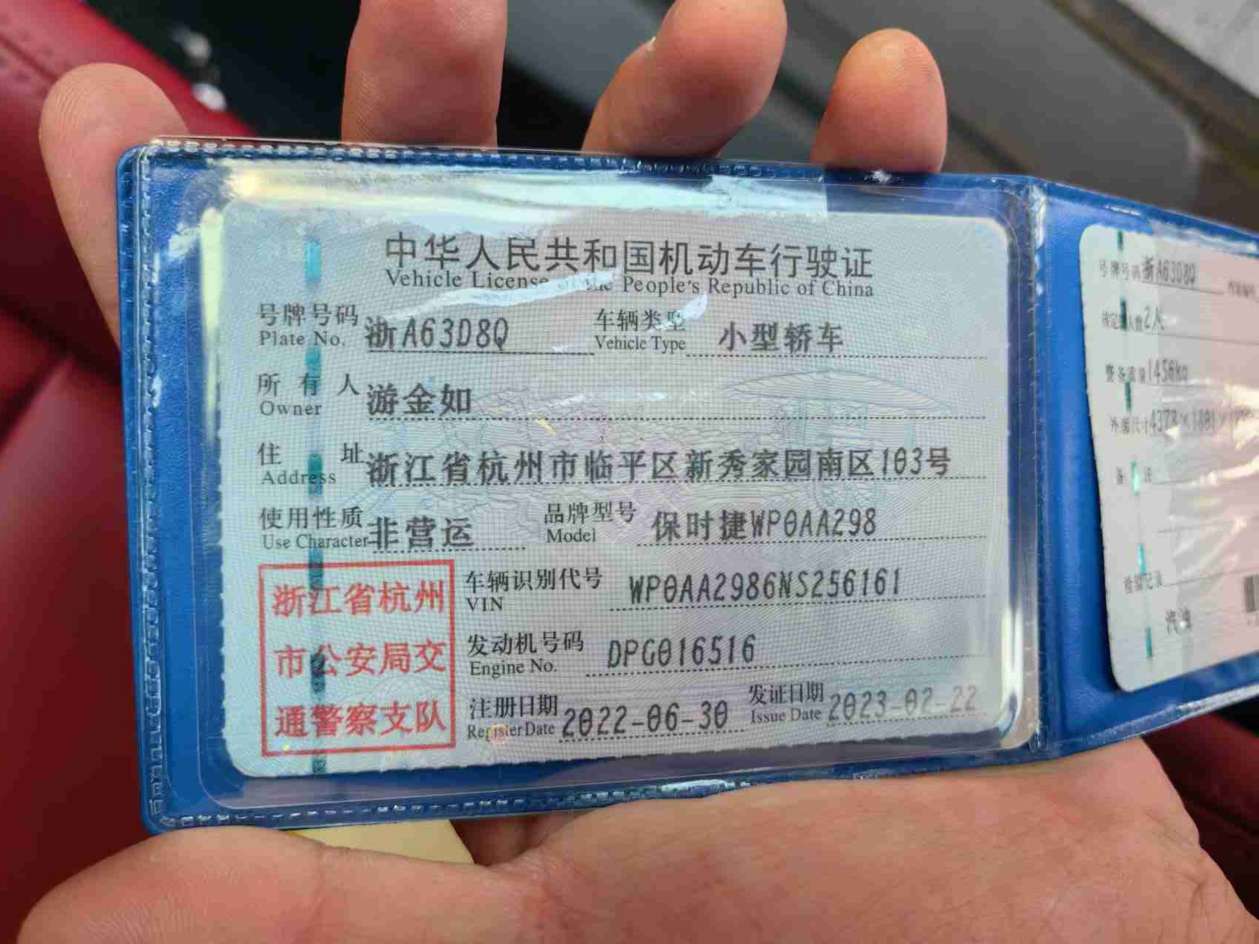 中华人民共和国机动车行驶证
Vehicle License of the People's Republic of China
号牌号码 浙A63D8Q 车辆类型 小型轿车
Plate No. Vehicle Type
所有人 游金如
Owner
住址 浙江省杭州市临平区新秀家园南区103号
Address
使用性质 非营运 品牌型号 保时捷WP0AA298
Use Character Model
浙江省杭州
市公安局交
通警察支队
车辆识别代号 WP0AA2986NS256161
VIN
发动机号码 DPG016516
Engine No.
注册日期 2022-06-30 发证日期 2023-02-22
Register Date Issue Date
号牌号码 浙A63D8Q
核定载人数 2人
整备质量 1456kg
外廓尺寸 4378×1801×
备注
检验记录